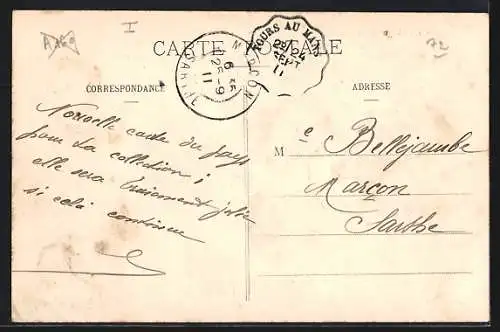 I
CARTE POSTALE
TOURS AU MANS
29/24
SEPT
11
MARÇON
6 35
25-9
11
SARTHE
72
CORRESPONDANCE
ADRESSE
Nouvelle carte du pays
pour ta collection ;
elle sera vraiment jolie
si cela continue
Me Bellejambe
Marçon
Sarthe